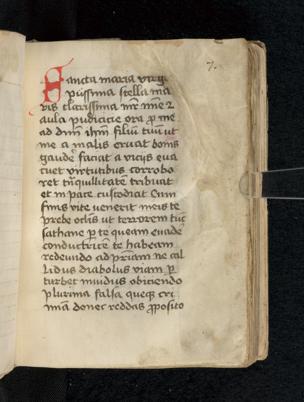 7.
Sancta maria virgo
piissima stella ma
ris clarissima mr̄ mīe ⁊
aula pudicicie ora ꝑ me
ad dnm̄ ihm̄ filiū tuū ut
me a malis eruat bonis
gaudē faciat a vicijs eua
cuet virtutibus corrobo
ret tn̄quillitatē tribuat
et in pace custodiat Cum
finis vite venerit meis te
prebe oclis ut terrorem tūc
sathane ꝑ te queam euadē
conductricē te habeam
redeundo ad pr̄iam ne cal
lidus diabolus viam ꝑ
turbet inuidus obiciendo
plurima falsa queqꝫ cri
mīa donec reddas ꝓposito